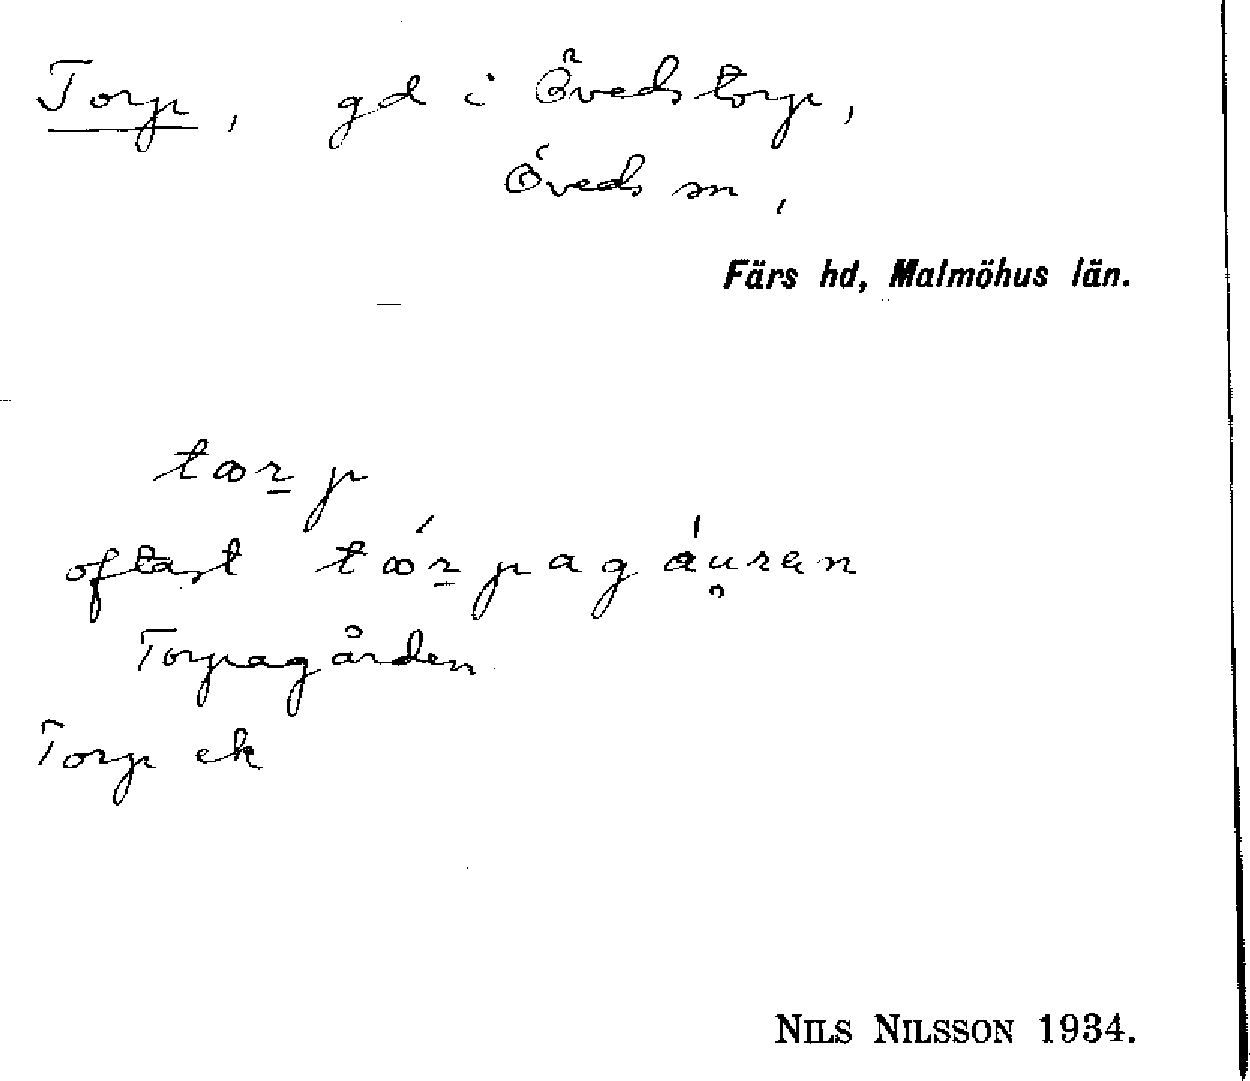 Torp, gd i Övedstorp,
Öveds sn,
Färs hd, Malmöhus län.
tꝏr̲p
oftast tꝏ́r̲pagáu̯ran
Torpagården
Torp ek
NILS NILSSON 1934.